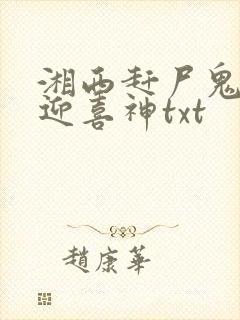 湘西赶尸鬼
迎喜神txt
趙康華